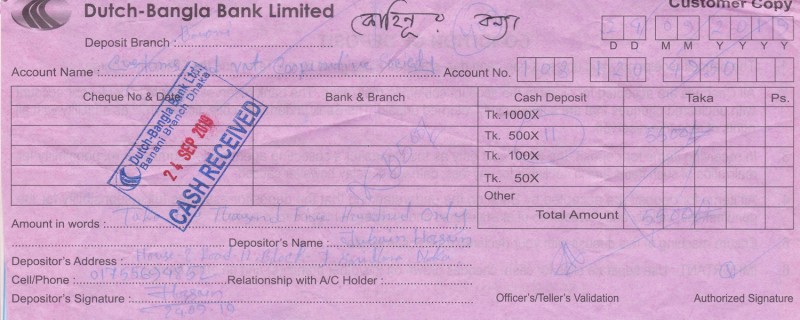 Dutch-Bangla Bank Limited কোহিনূর কন্যা Customer Copy
Deposit Branch : Banani
D D M M Y Y Y Y
Account Name : Customs and Vat Cooperative Society Account No. 108 120
Cheque No & Date Bank & Branch Cash Deposit Taka Ps.
Tk. 1000X
Tk. 500X 11 5500/-
Tk. 100X
Tk. 50X
Other
Total Amount 5500/-
Dutch-Bangla Bank Ltd.
Banani Branch Dhaka
24 SEP 2018
CASH RECEIVED
Amount in words : Taka Thousand Five Hundred Only
Depositor's Name :
Depositor's Address : House-2 Road
Cell/Phone : Relationship with A/C Holder :
Depositor's Signature : Officer's/Teller's Validation Authorized Signature